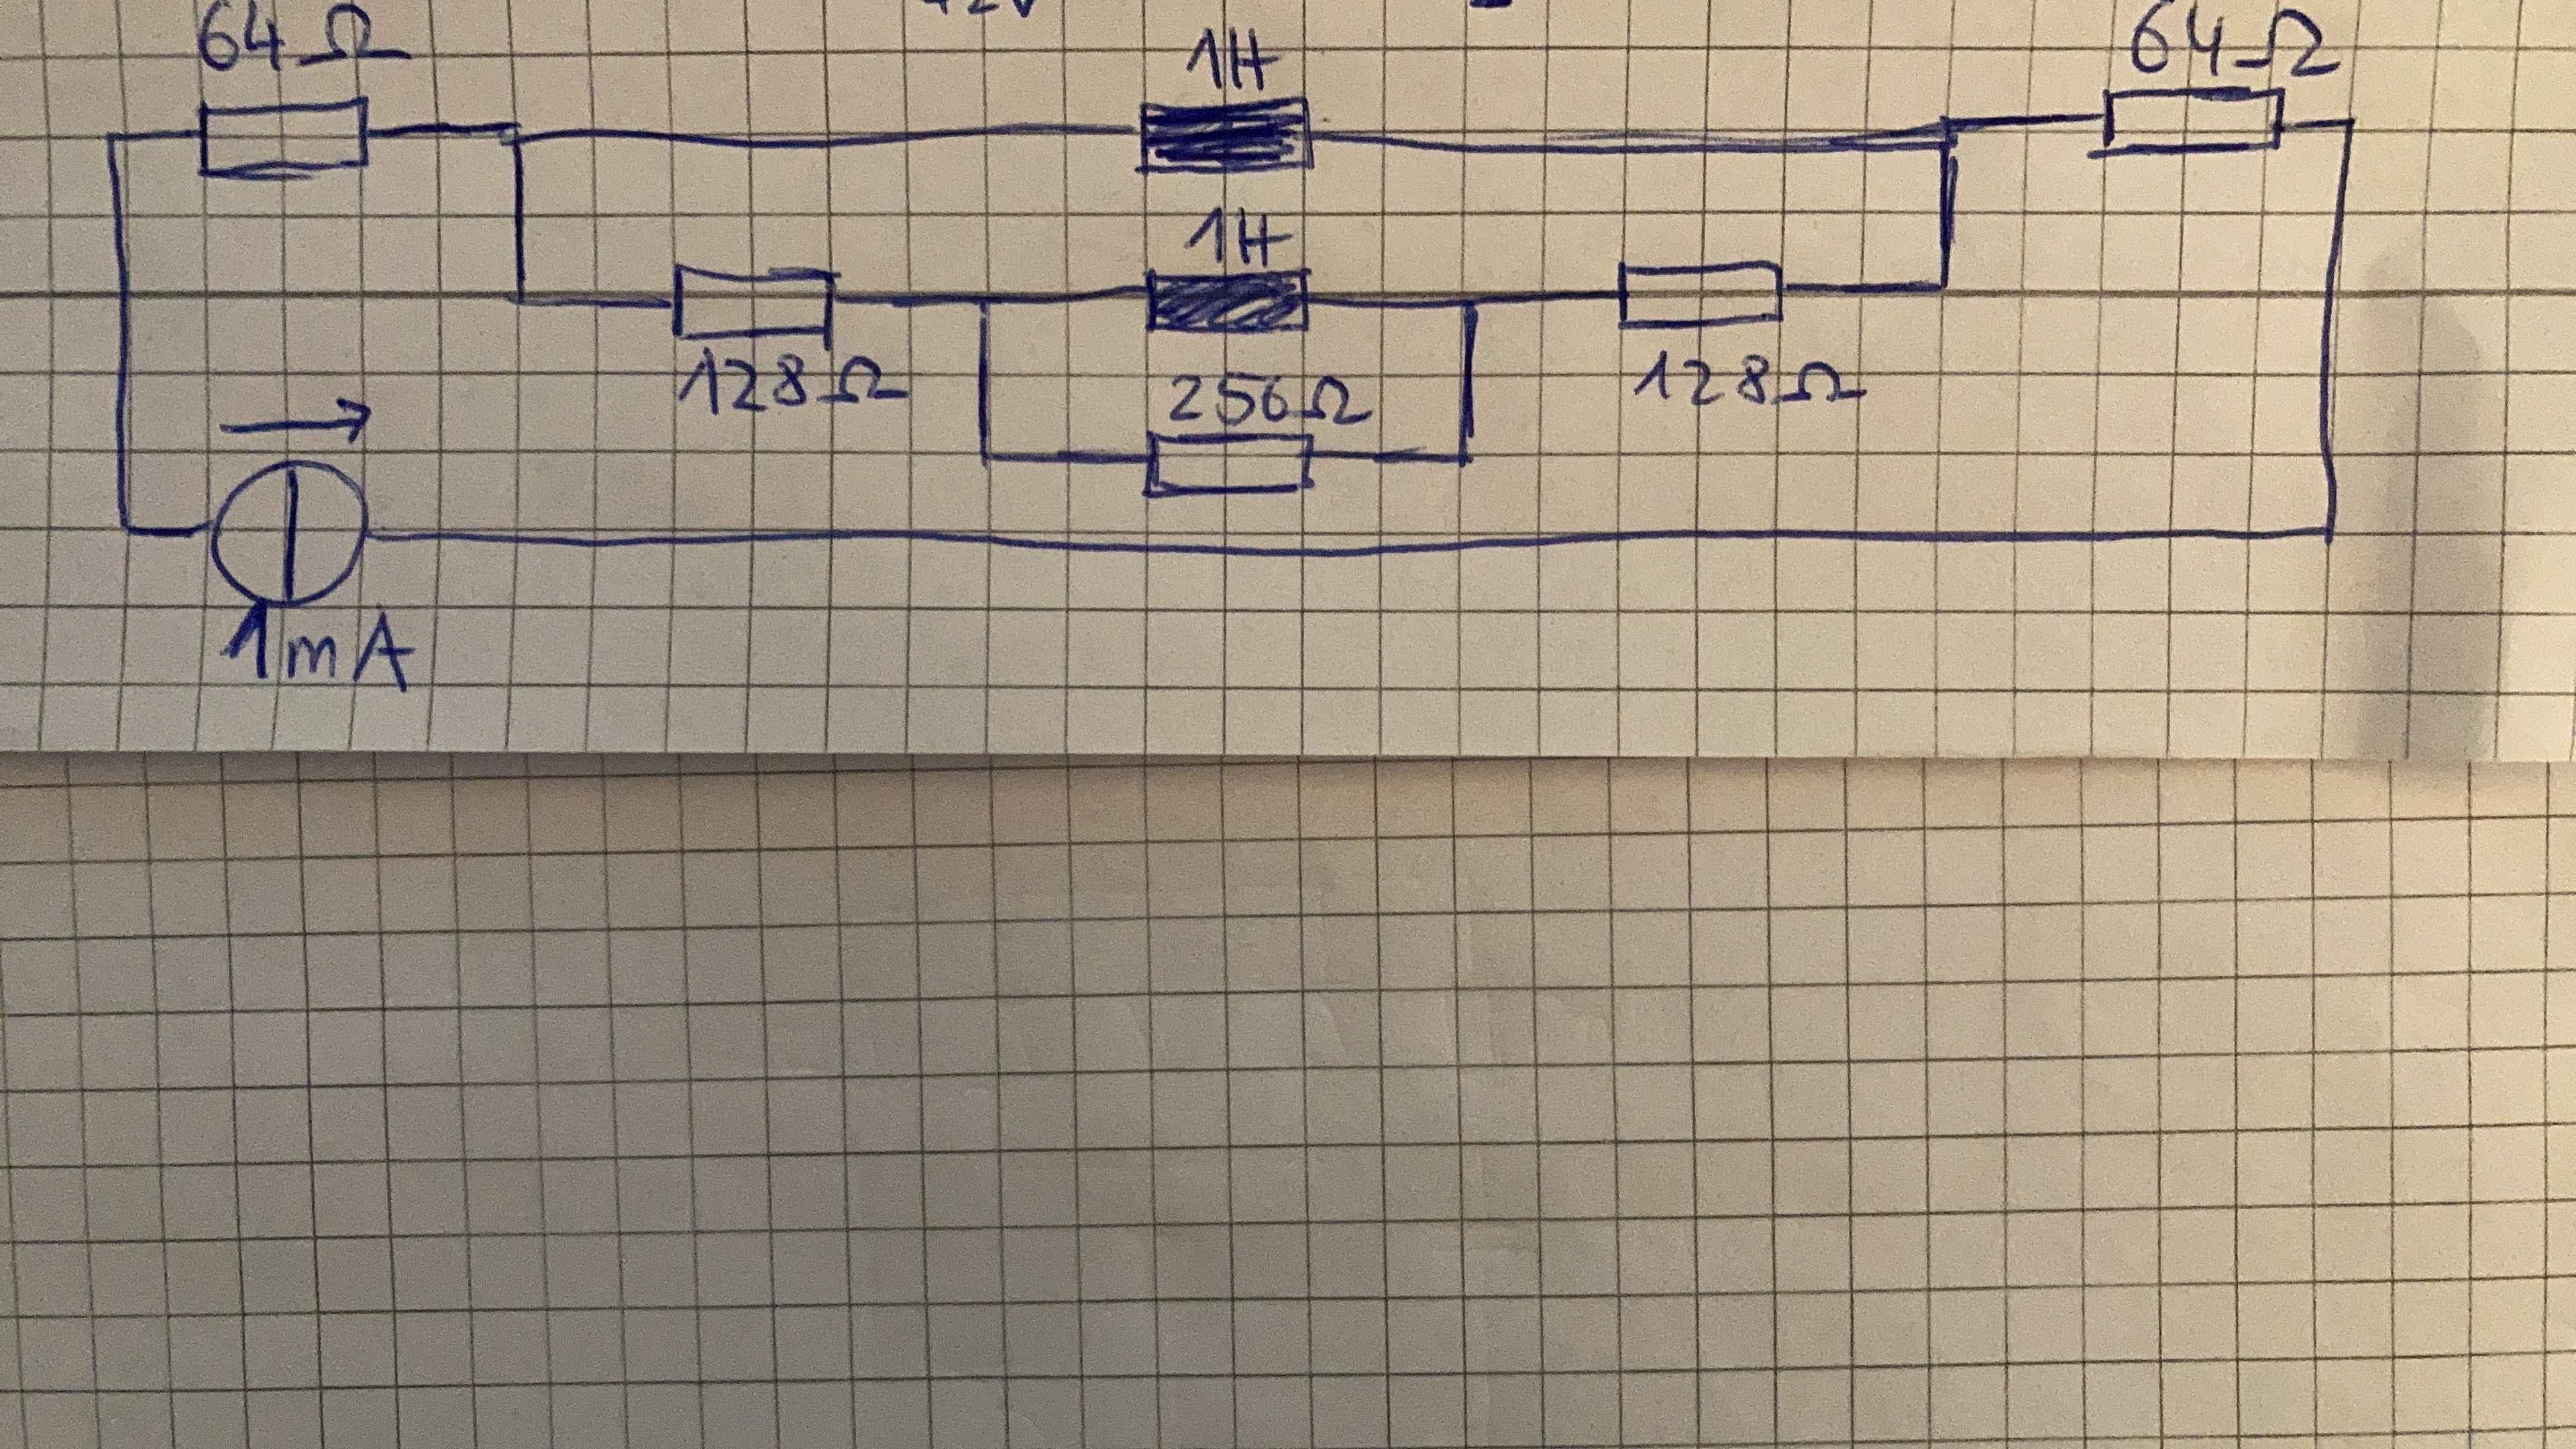 64Ω
1H
64Ω
1H
128Ω
256Ω
128Ω
1mA